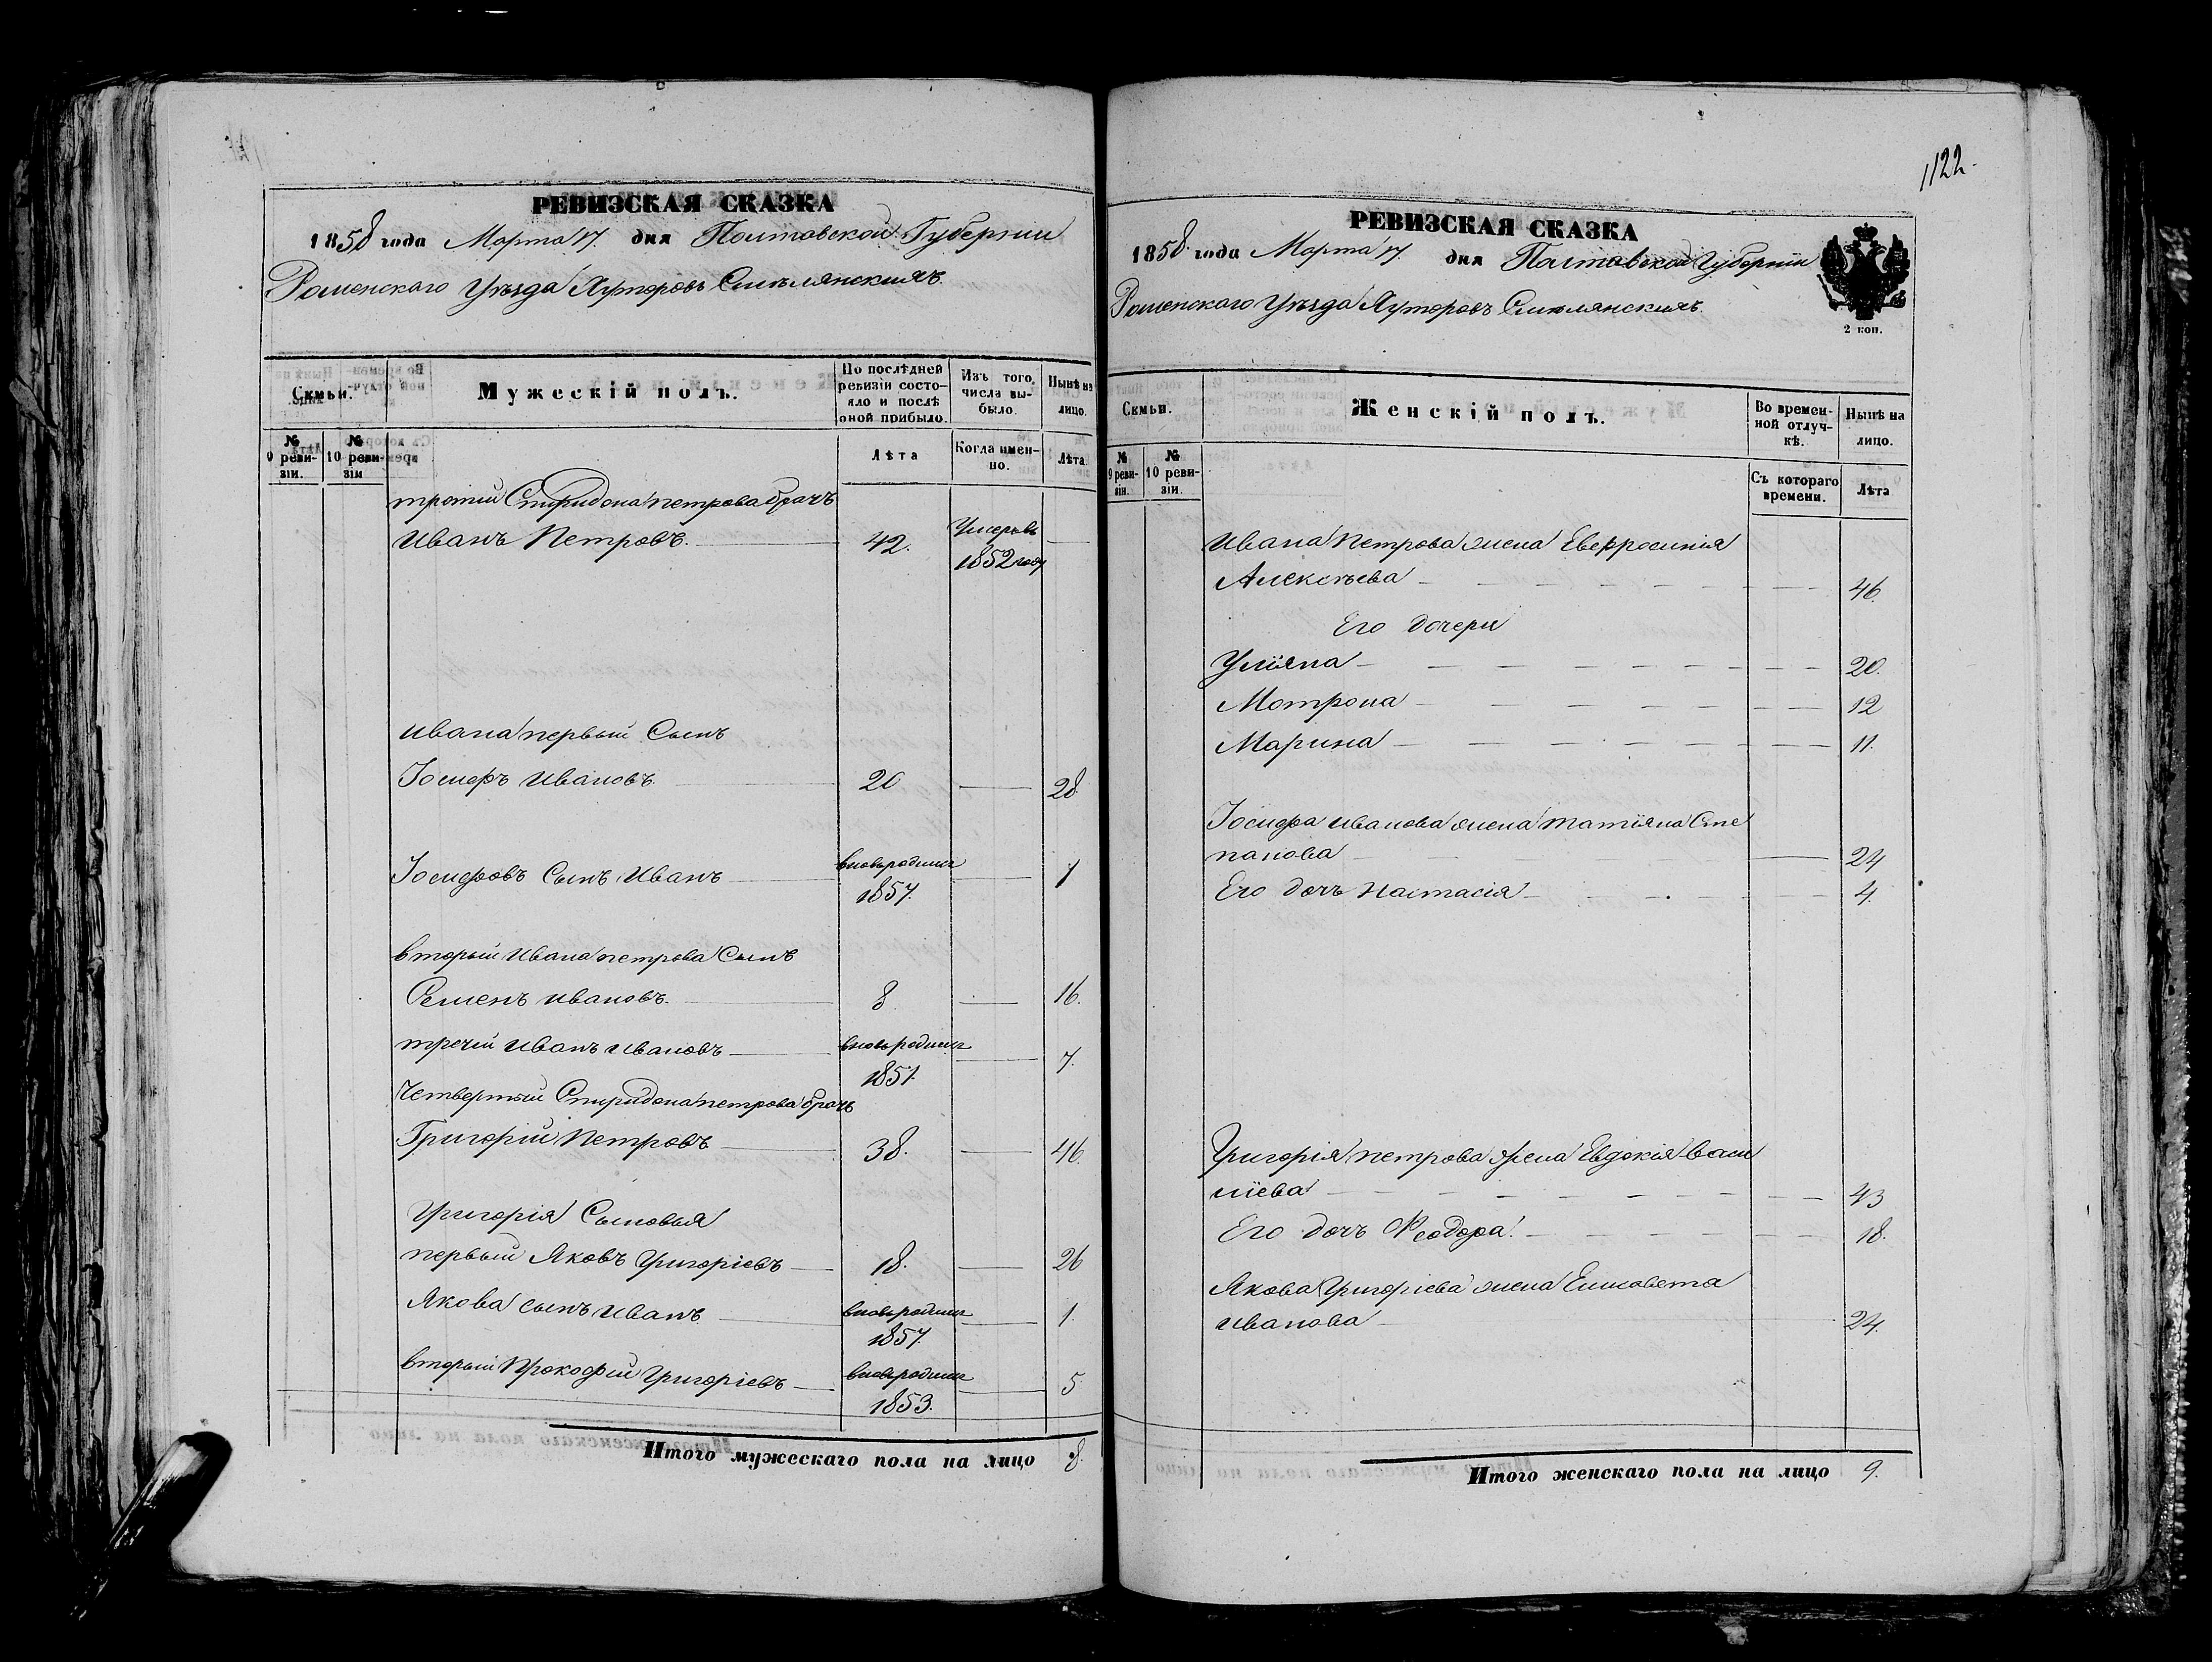 РЕВИЗСКАЯ СКАЗКА
1858 года Марта 17. дня Полтавской Губернии
Роменскаго Уѣзда Хуторовъ Смѣлянскихъ.
Семьи. Мужескій полъ. По послѣдней ревизіи состояло и послѣ оной прибыло. Изъ того числа выбыло. Нынѣ на лицо.
№ 9 ревизіи. № 10 ревизіи Лѣта Когда именно. Лѣта
третій Спиридона петрова братъ
Иванъ Петровъ. 42. Умеръ въ 1852 году
Ивана первый Сынъ
Іосифъ Ивановъ. 20 28
Іосифовъ Сынъ Иванъ вновь родился 1857. 1
вторый Ивана петрова Сынъ
Семенъ Ивановъ. 8 16.
тречій Иванъ Ивановъ вновь родился 1851. 7.
Четвертый Спиридона петрова братъ
Григорій Петровъ 38. 46.
Григорія Сыновья
первый Яковъ Григоріевъ 18. 26
Якова сынъ Иванъ вновь родился 1857. 1.
вторый Прокофій Григоріевъ вновь родился 1853. 5.
Итого мужескаго пола на лицо 8.
1122.
РЕВИЗСКАЯ СКАЗКА
1858. года Марта 17. дня Полтавской Губерніи
Роменскаго Уѣзда Хуторовъ Смѣлянскихъ.
2 коп.
Семьи. Женскій полъ. Во временной отлучкѣ. Нынѣ на лицо.
№ 9 ревизіи. № 10 ревизіи. Съ котораго времени. Лѣта
Ивана Петрова жена Евфросинія
Алексѣева 46.
Его дочери
Уліяна 20.
Мотрона 12
Марина 11.
Іосифа Иванова жена Татіяна Сте
панова 24
Его дочь Настасія 4.
Григорія петрова жена Евдокія Васи
ліева 43
Его дочь Феодора. 18.
Якова Григоріева жена Елисавета
Иванова 24.
Итого женскаго пола на лицо 9.